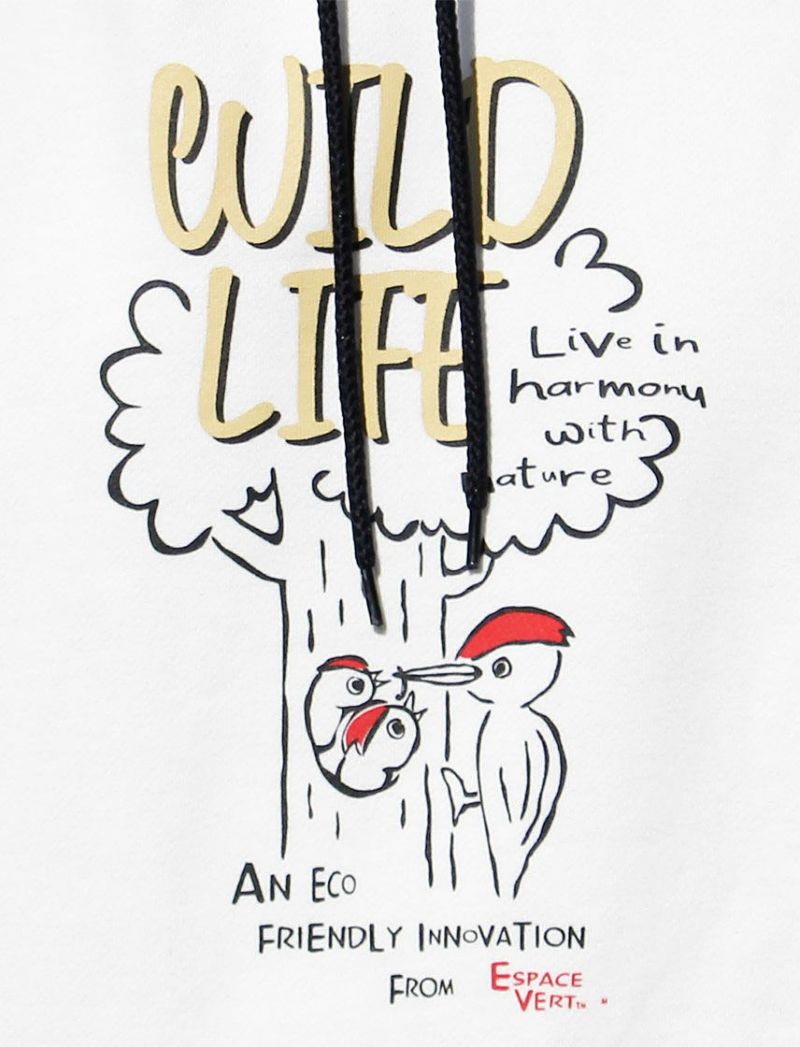 WILD
LIFE
Live in
harmony
with
nature
AN ECO
FRIENDLY INNOVATION
FROM ESPACE
VERT™